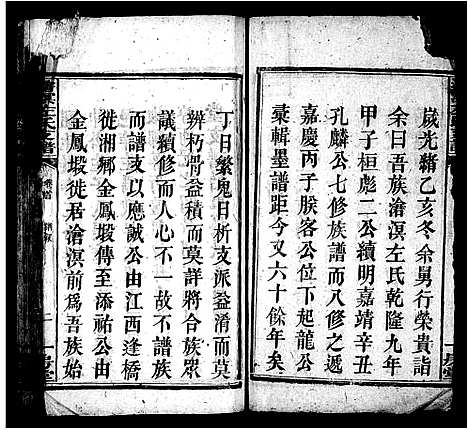 歲光緒乙亥冬余舅行榮貴詣
余曰吾族滄溟左氏乾隆九年
甲子桓彪二公續明嘉靖辛丑
孔麟公七修族譜而八修之遞
嘉慶丙子朕各公位下起龍公
彚輯墨譜距今又六十餘年矣
丁日繁鬼日析支派益淆而莫
辨朽骨益積而莫詳將合族眾
議續修而人心不一故不譜族
而譜支以應誠公由江西逢橋
徙湘鄉金鳳塅傳至添祐公由
金鳳塅徙居滄溟前爲吾族始